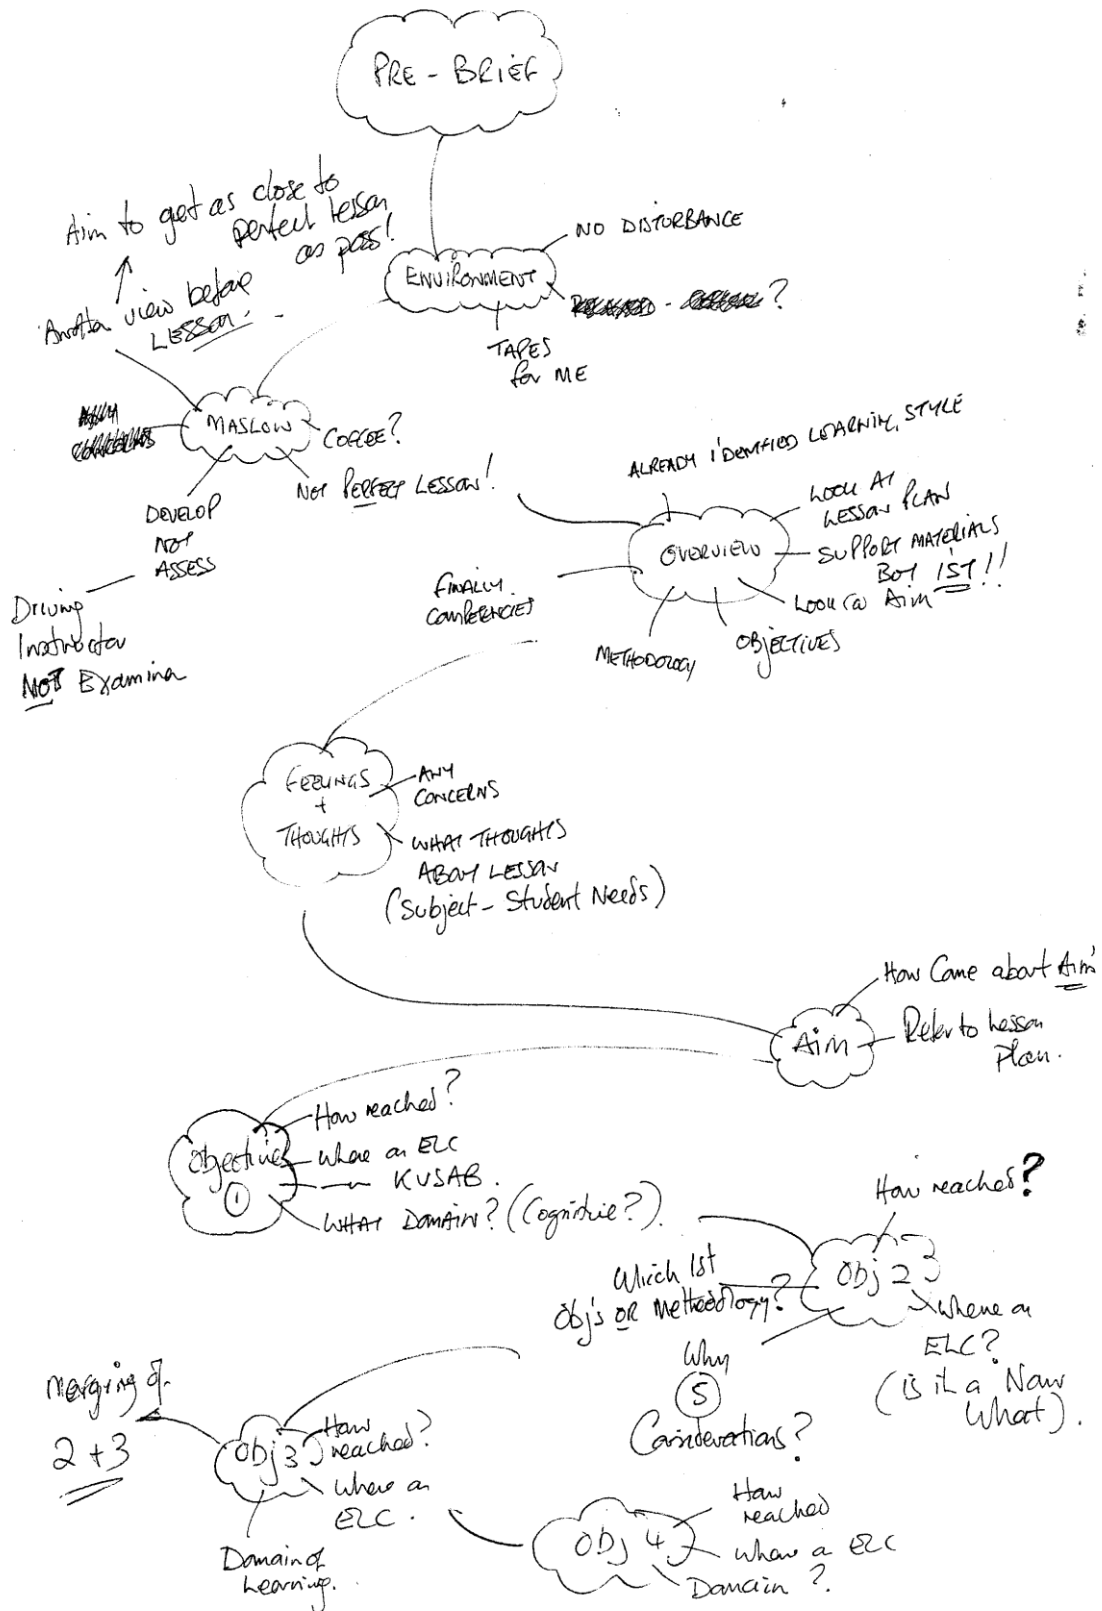 PRE - BRIEF
Aim to get as close to
perfect lesson
as poss!
Another view before
LESSON.
ENVIRONMENT
NO DISTURBANCE
?
TAPES
for ME
MASLOW
COFFEE?
NOT PERFECT LESSON!
DEVELOP
NOT
ASSESS
Driving
Instructor
NOT Examiner
ALREADY IDENTIFIED LEARNING STYLE
OVERVIEW
LOOK AT
LESSON PLAN
SUPPORT MATERIALS
BOT 1ST!!
LOOK @ Aim
OBJECTIVES
METHODOLOGY
FINALLY
COMPERENCIES
FEELINGS
+
THOUGHTS
ANY
CONCERNS
WHAT THOUGHTS
ABOUT LESSON
(Subject - Student Needs)
Aim
How Came about Aim
Refer to Lesson
Plan.
Objective
1
How reached?
where on ELC
KUSAB.
WHAT DOMAIN? (Cognitive?).
Obj 2
How reached?
Which 1st
Obj's OR Methodology?
where on
ELC?
(is it a Now
What).
Why
5
Considerations?
Merging of
2 + 3
Obj 3
How
reached?
where on
ELC.
Domain of
Learning.
Obj 4
How
reached
where a ELC
Domain?